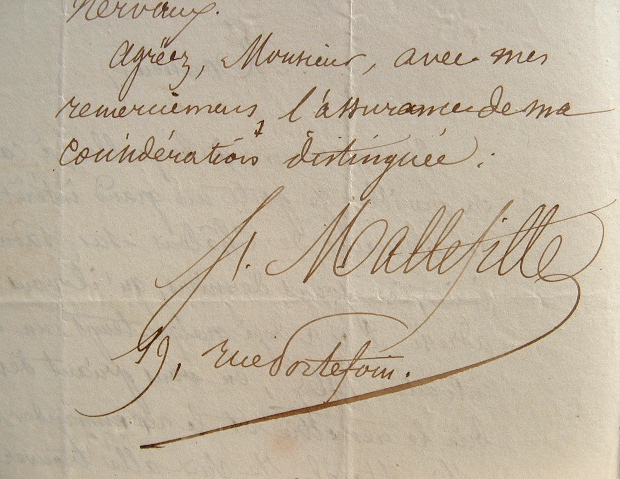 nerveux.
Agréez, Monsieur, avec mes
remerciemens, l'assurance de ma
considération distinguée.
f. Mallefille
19, rue Portefoin.